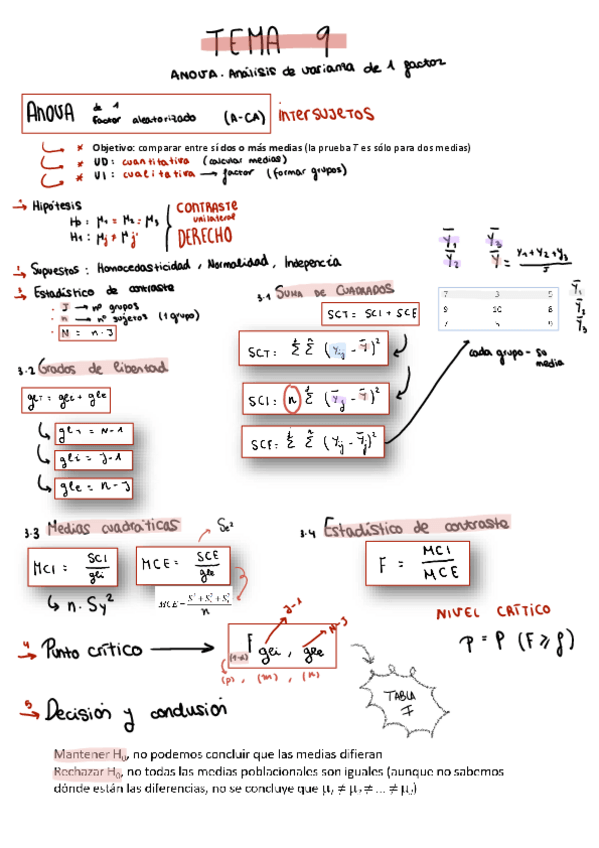 TEMA 9
ANOVA. Análisis de varianza de 1 factor
ANOVA de 1 factor aleatorizado (A-CA) intersujetos
* Objetivo: comparar entre sí dos o más medias (la prueba T es sólo para dos medias)
* VD: cuantitativa (calcular medias)
* VI: cualitativa → factor (formar grupos)
Hipótesis
H0: μ1 = μ2 = μ3
H1: μj ≠ μj'
CONTRASTE
unilateral
DERECHO
2. Supuestos: Homocedasticidad, Normalidad, Indepencia
3. Estadístico de contraste
· J → nº grupos
· n → nº sujetos (1 grupo)
· N = n·J
3.1 SUMA DE CUADRADOS
SCT = SCI + SCE
SCT = Σ Σ (Yij - Ȳ)²
SCI = n Σ (Ȳj - Ȳ)²
SCE = Σ Σ (Yij - Ȳj)²
Ȳ1 Ȳ3
Ȳ2 Ȳ = Y1+Y2+Y3 / J
7 3 5 Ȳ1
9 10 8 Ȳ2
7 5 9 Ȳ3
cada grupo - su media
3.2 Grados de libertad
glT = gli + gle
glT = N-1
gli = J-1
gle = N-J
3.3 Medias cuadráticas
Se²
MCI = SCI / gli
MCE = SCE / gle
↳ n·Sy²
3.4 Estadístico de contraste
F = MCI / MCE
NIVEL CRÍTICO
p = P (F ≥ f)
4. Punto crítico → F gli, gle
J-1
N-J
(1-α)
(p), (m), (n)
TABLA F
5. Decisión y conclusión
Mantener H0, no podemos concluir que las medias difieran
Rechazar H0, no todas las medias poblacionales son iguales (aunque no sabemos
dónde están las diferencias, no se concluye que μ1 ≠ μ2 ≠ ... ≠ μJ)